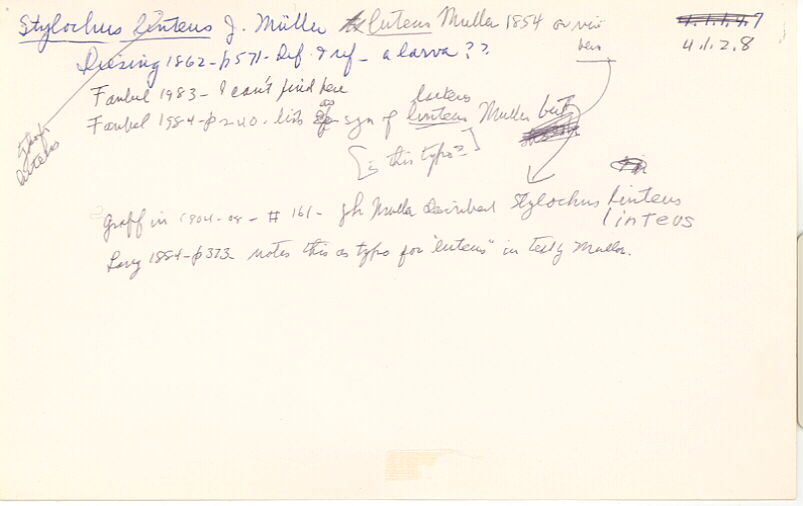 Stylochus linteus J. Müller luteus Muller 1854 or vice 4.1.1.4.7
here 4.1.2.8
Diesing 1862 - p571 - Def. & ref - a larva??
Faubel 1983 - I can't find here
luteus
Faubel 1984 - p240 - lists as syn of linteus Muller but
[is this typo?]
Graff in 1904-08 - # 161 - Joh Muller described Stylochus linteus
linteus
Lang 1884 - p373 notes this as typo for "luteus" in text by Muller.